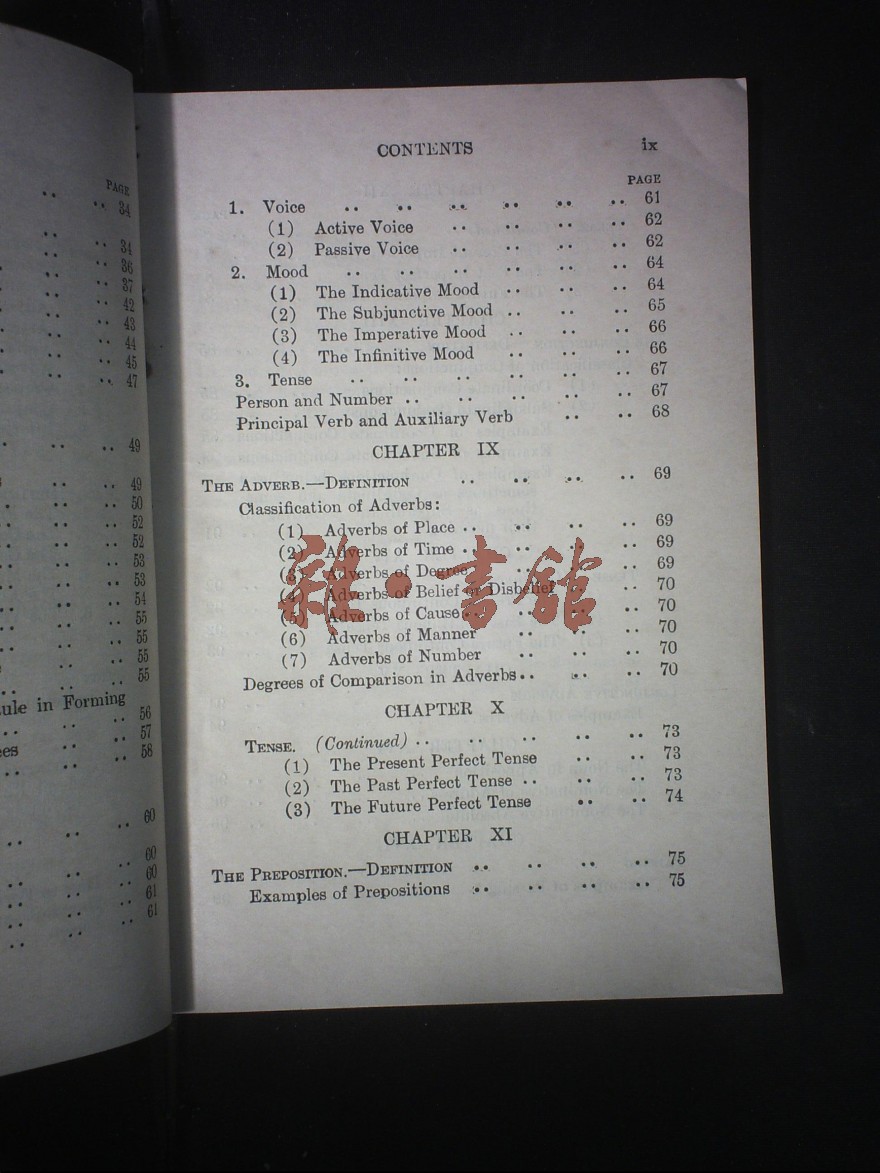 PAGE
.. .. 34
.. .. 34
.. .. 36
.. .. 37
.. .. 42
.. .. 43
.. .. 44
.. .. 45
.. .. 47
.. .. 49
.. .. 49
.. .. 50
.. .. 52
.. .. 52
.. .. 53
.. .. 53
.. .. 54
.. .. 55
.. .. 55
.. .. 55
.. .. 55
ule in Forming
.. .. 56
.. .. 57
.. .. 58
.. .. 60
.. .. 60
.. .. 60
.. .. 61
.. .. 61
CONTENTS ix
PAGE
1. Voice .. .. .. .. .. .. 61
(1) Active Voice .. .. .. .. 62
(2) Passive Voice .. .. .. .. 62
2. Mood .. .. .. .. .. .. 64
(1) The Indicative Mood .. .. .. 64
(2) The Subjunctive Mood .. .. .. 65
(3) The Imperative Mood .. .. .. 66
(4) The Infinitive Mood .. .. .. 66
3. Tense .. .. .. .. .. .. 67
Person and Number .. .. .. .. .. 67
Principal Verb and Auxiliary Verb .. .. 68
CHAPTER IX
THE ADVERB.—DEFINITION .. .. .. .. 69
Classification of Adverbs:
(1) Adverbs of Place .. .. .. .. 69
(2) Adverbs of Time .. .. .. .. 69
(3) Adverbs of Degree .. .. .. 69
(4) Adverbs of Belief or Disbelief .. .. 70
(5) Adverbs of Cause .. .. .. .. 70
(6) Adverbs of Manner .. .. .. 70
(7) Adverbs of Number .. .. .. 70
Degrees of Comparison in Adverbs .. .. .. 70
CHAPTER X
TENSE. (Continued) .. .. .. .. .. 73
(1) The Present Perfect Tense .. .. 73
(2) The Past Perfect Tense .. .. .. 73
(3) The Future Perfect Tense .. .. 74
CHAPTER XI
THE PREPOSITION.—DEFINITION .. .. .. .. 75
Examples of Prepositions .. .. .. .. 75
雜·書館